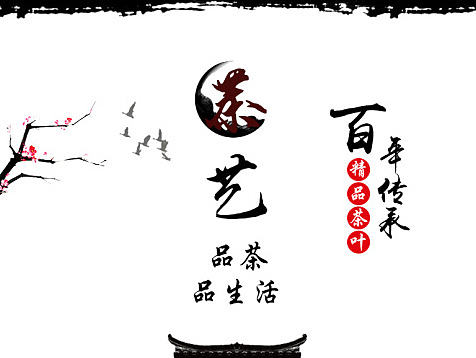 茶
艺
品茶
品生活
百年传承
精品茶叶